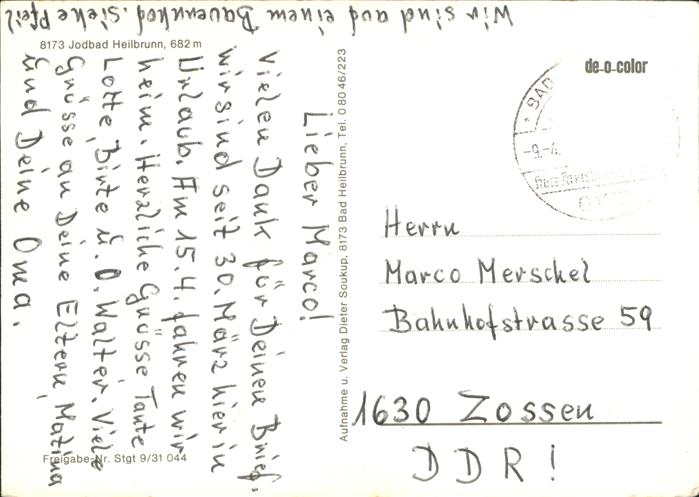 Wir sind auf einem Bauernhof. Siehe Pfeil
8173 Jodbad Heilbrunn, 682 m
Lieber Marco!
Vielen Dank für Deinen Brief.
Wir sind seit 30. März hier in
Urlaub. Am 15.4. fahren wir
heim. Herzliche Grüsse Tante
Lotte, Birte u. O. Walter. Viele
Grüsse an Deine Eltern, Matina
und Deine Oma.
Freigabe-Nr. Stgt 9/31 044
Aufnahme u. Verlag Dieter Soukup, 8173 Bad Heilbrunn, Tel. 0 80 46/223
de-o-color
BAD
-9.-4.
Herrn
Marco Merschel
Bahnhofstrasse 59
1630 Zossen
DDR!